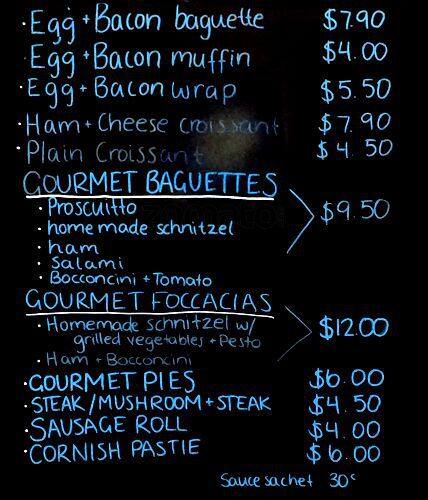 · Egg + Bacon baguette $7.90
Egg + Bacon muffin $4.00
· Egg + Bacon wrap $5.50
· Ham + Cheese croissant $7.90
· Plain Croissant $4.50
GOURMET BAGUETTES
· Proscuitto
· homemade schnitzel $9.50
· ham
· Salami
· Bocconcini + Tomato
GOURMET FOCCACIAS
· Homemade schnitzel w/ $12.00
grilled vegetables + Pesto
· Ham + Bocconcini
· GOURMET PIES $6.00
· STEAK/MUSHROOM + STEAK $4.50
· SAUSAGE ROLL $4.00
· CORNISH PASTIE $6.00
Sauce sachet 30c